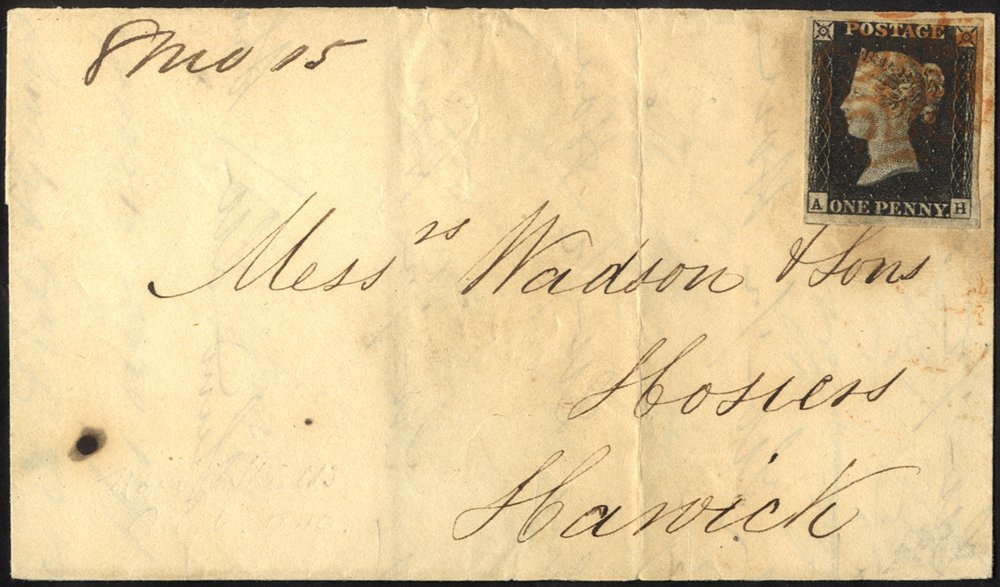 8 mo 15
POSTAGE
A ONE PENNY H
Messrs Wadson & Sons
Hosiers
Hawick